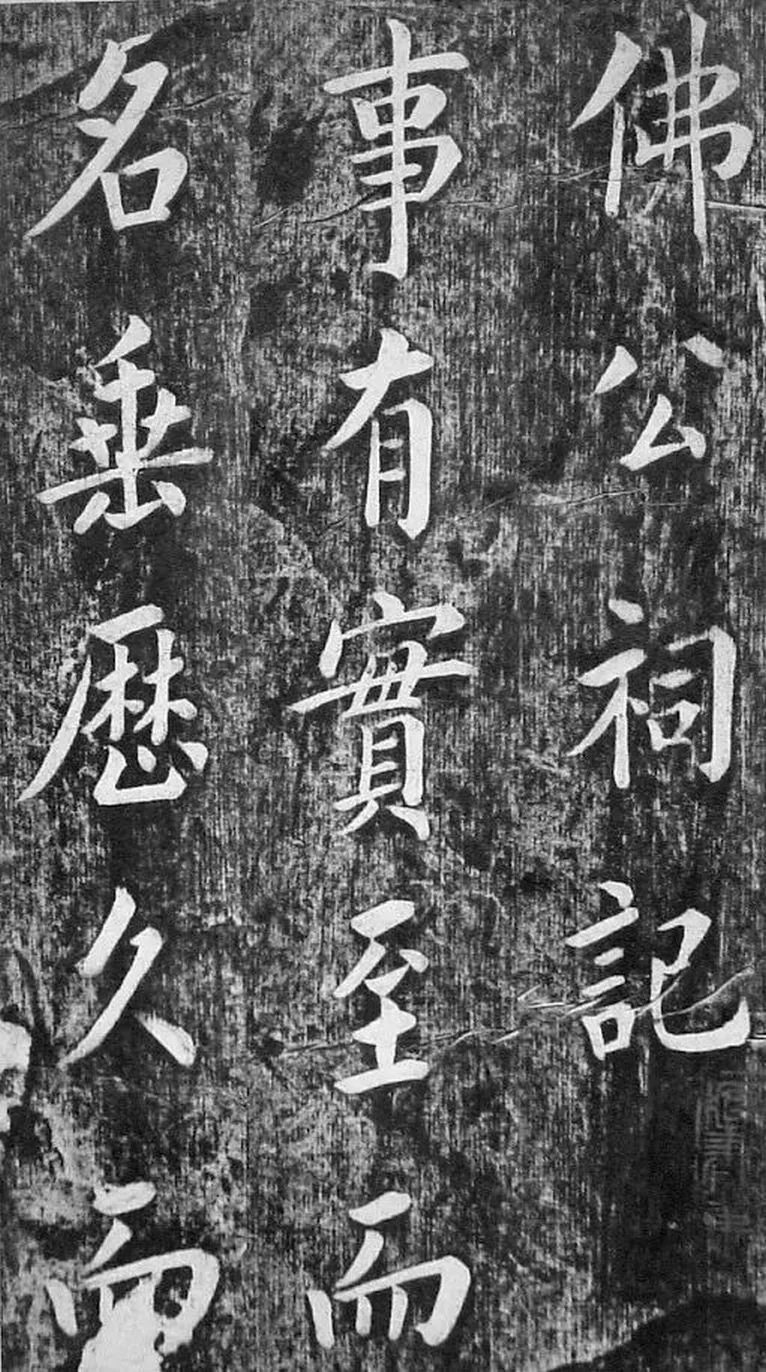 佛公祠記
事有實至而
名垂歷久而